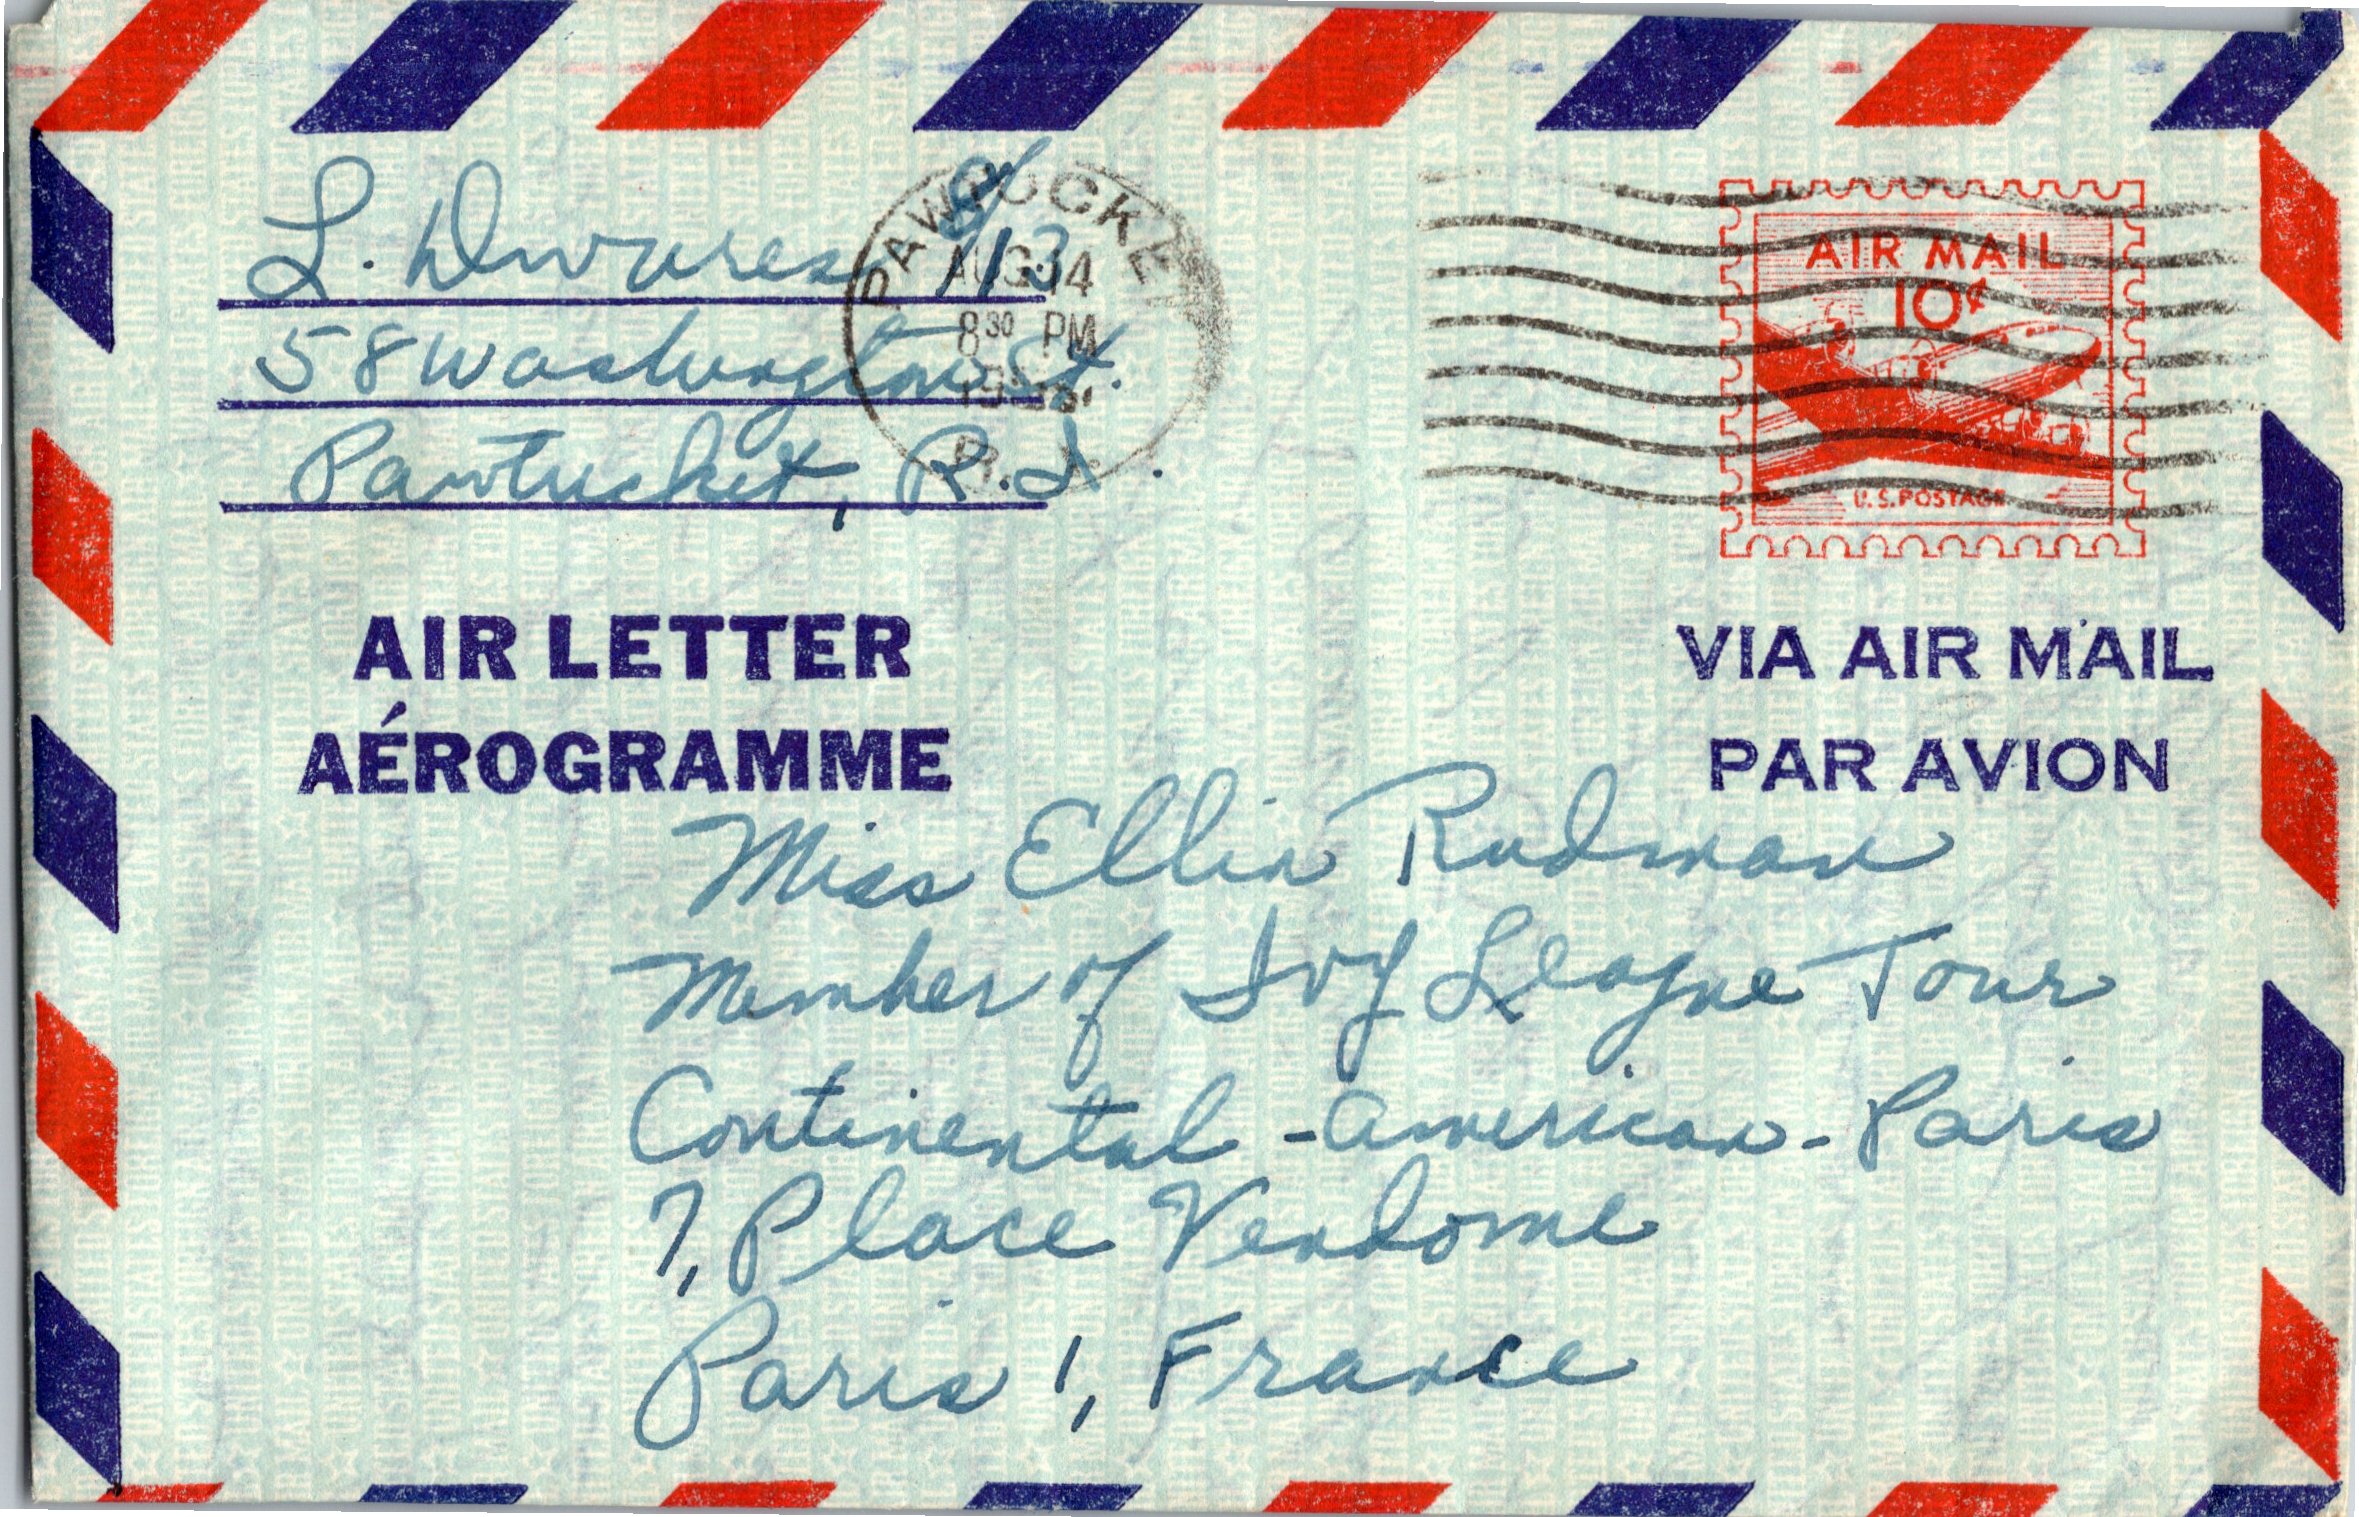 L. Dwares 8/13
58 Washington St.
Pawtucket, R.I.
PAWTUCKET
AUG 14
8 30 PM
R. I.
AIR MAIL
10¢
U.S. POSTAGE
AIR LETTER
AÉROGRAMME
VIA AIR MAIL
PAR AVION
Miss Ellin Rudman
Member of Ivy League Tour
Continental - American - Paris
7, Place Vendome
Paris 1, France